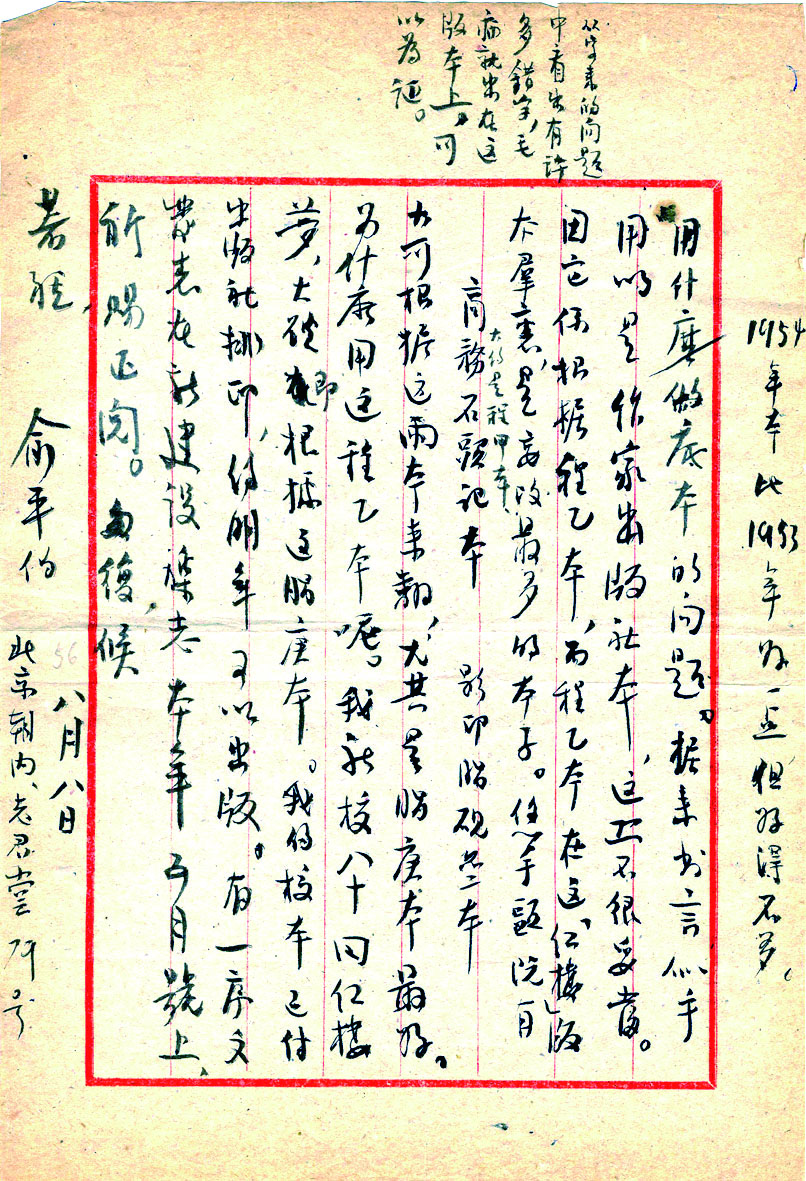 从寄来的问题
中看出有许
多错字,毛
病就出在这
版本上。可
以为证。
1954年本比1953年好一些但好得不多,
用什麽做底本的问题。据来书言似乎
用的是作家出版社本,这并不很妥当。
因它系根据程乙本,而程乙本在这「红楼」版
本羣裏,是妄改最多的本子。你甲
大约是程甲本
商務石頭记本 影印脂砚斋本
大可根据这兩本来翻,尤其是脂庚本最好。
为什麽用这程乙本呢。我新校八十回红楼
夢,大致即根據这脂庚本。我的校本已付
出版社排印,约明年可以出版。有一序文
發表在新建设杂志本年五月號上,
祈賜正阅。匆復,候
著祺,
俞平伯
八月八日
56
北京朝内,老君堂79号